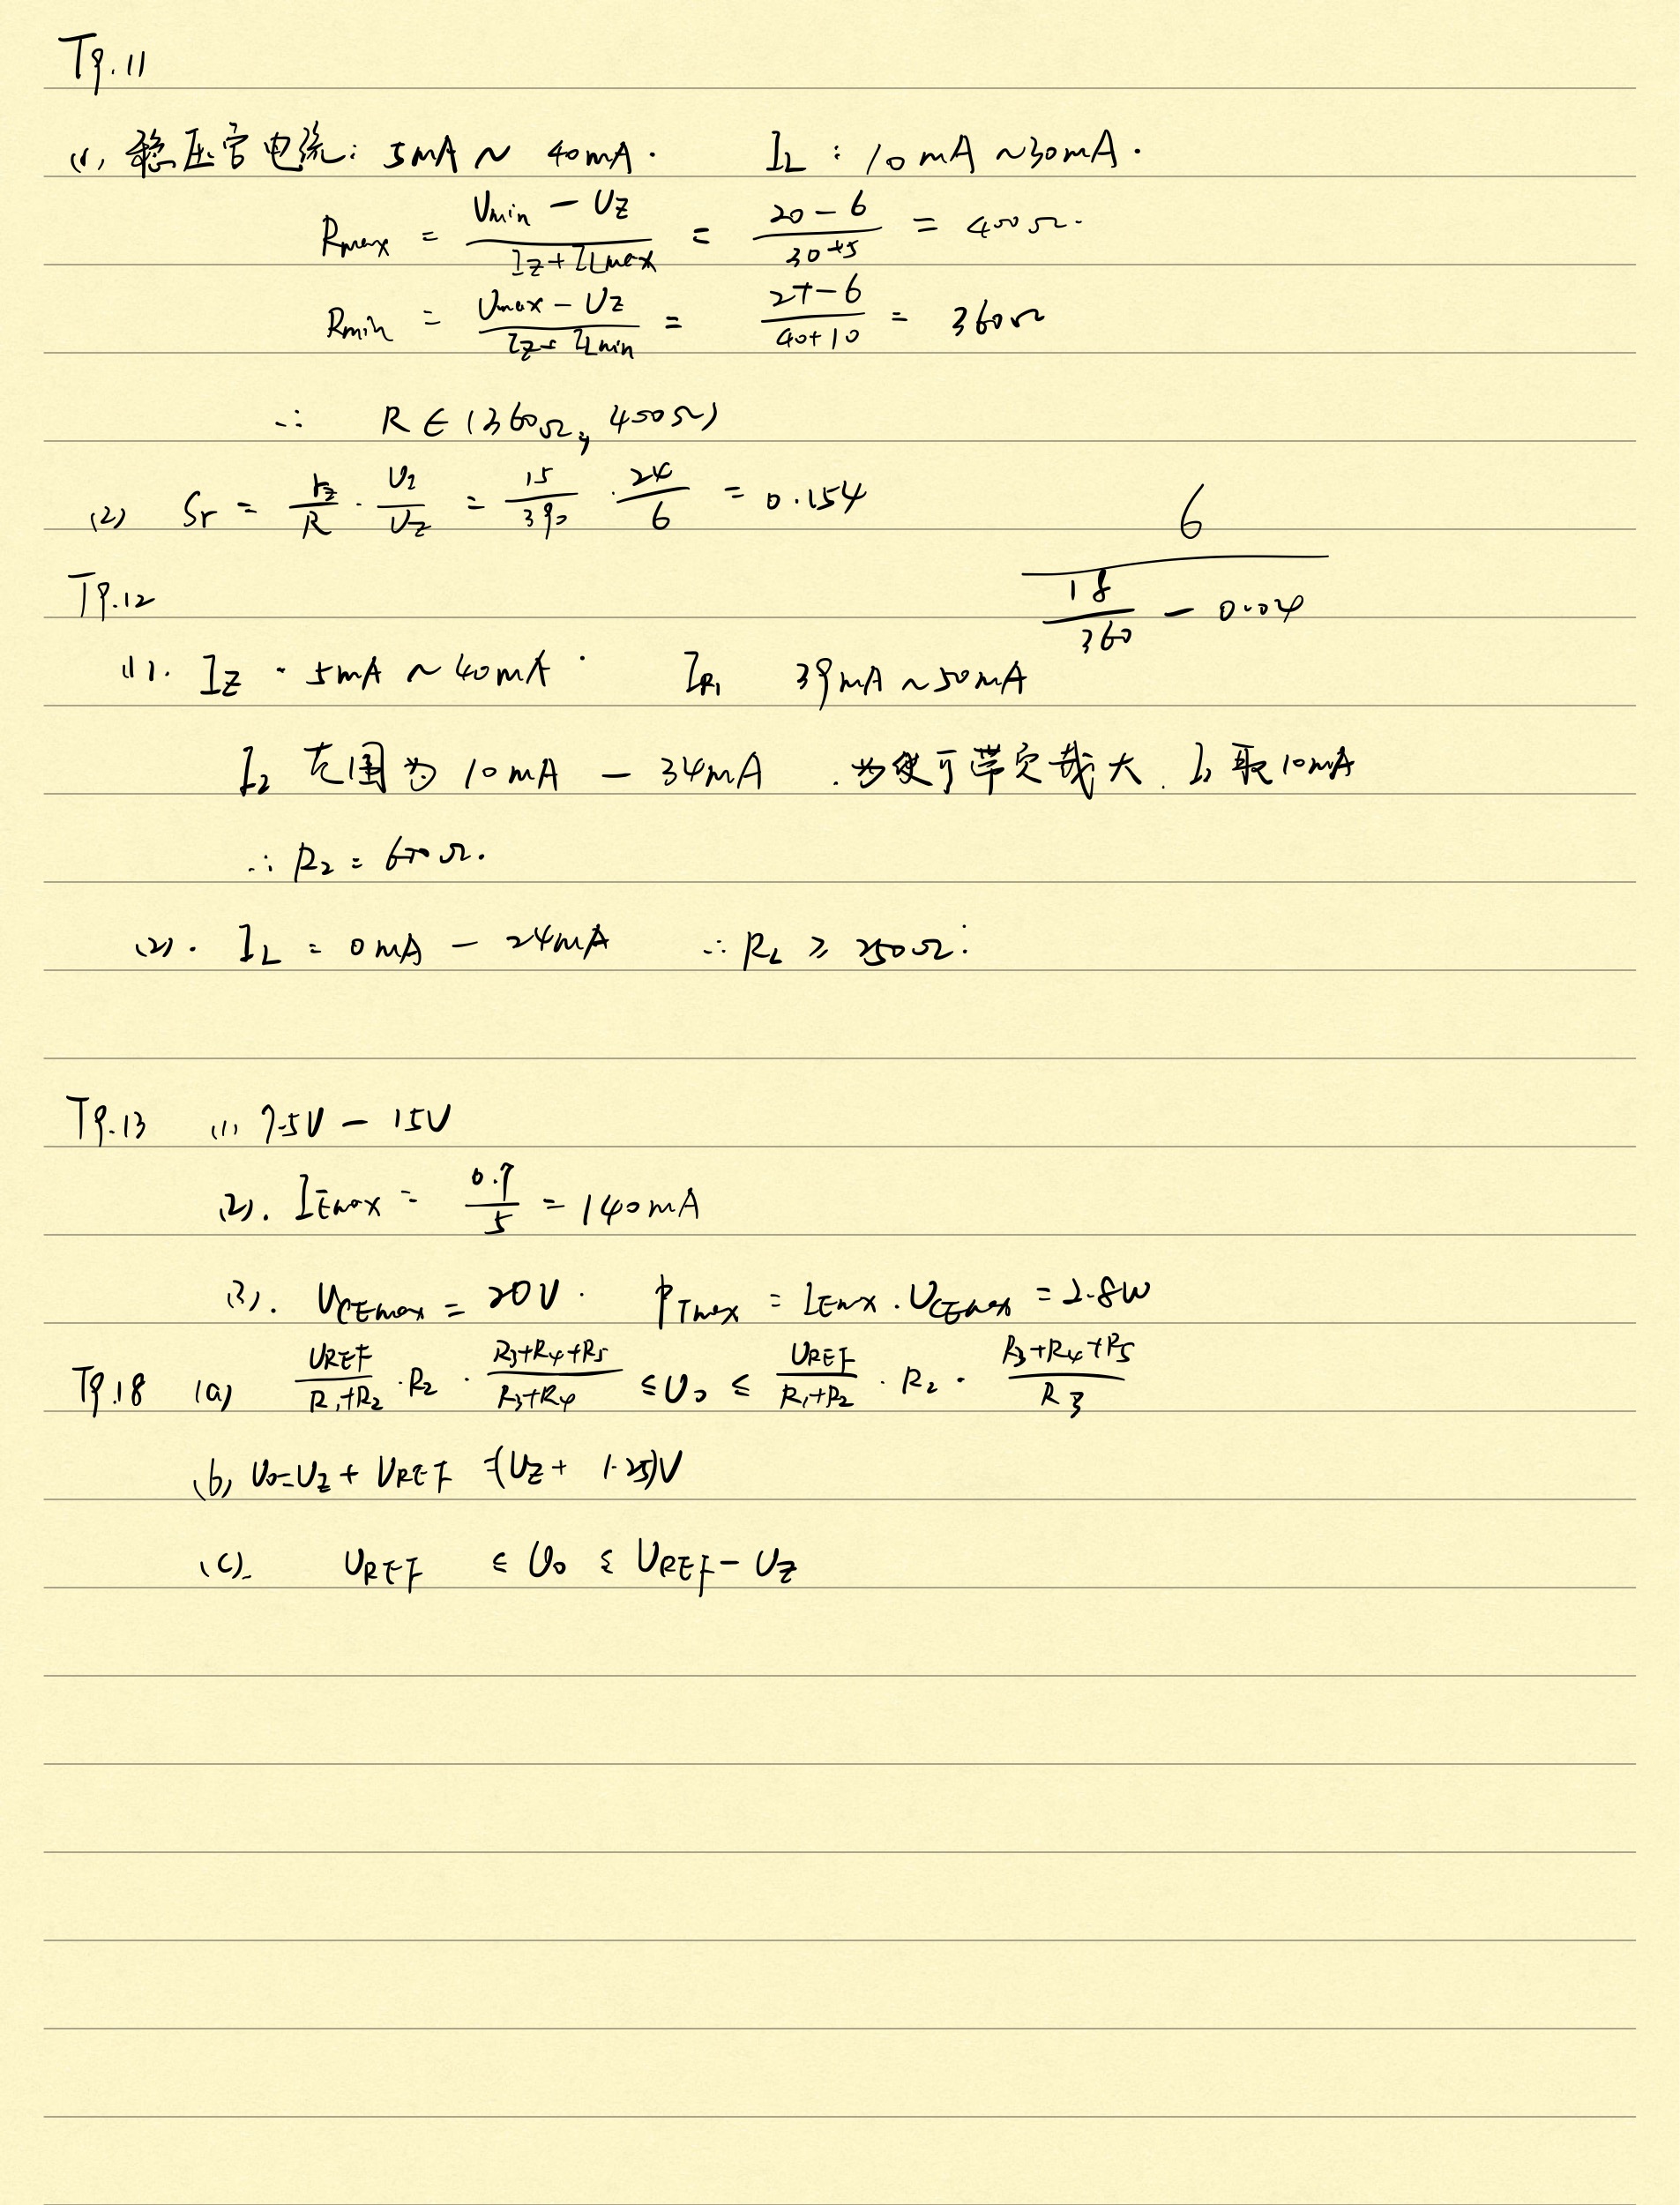 T9.11
(1) 稳压管电流: 5mA ~ 40mA. I_L : 10mA ~ 30mA.
R_max = (U_min - U_Z)/(I_Z + I_Lmax) = (20-6)/(30+5) = 400Ω.
R_min = (U_max - U_Z)/(I_Z + I_Lmin) = (27-6)/(40+10) = 360Ω
∴ R ∈ (360Ω, 400Ω)
(2) Sr = r_Z/R · U_I/U_Z = 15/390 · 24/6 = 0.154
6/(18/360 - 0.04)
T9.12
(1). I_Z · 5mA ~ 40mA. I_R1 39mA ~ 50mA
I_2 范围为 10mA - 34mA. 为使可带负载大. I_2 取 10mA
∴ R_2 = 600Ω.
(2). I_L = 0mA - 24mA ∴ R_L ≥ 250Ω.
T9.13 (1) 7.5V - 15V
(2). I_Emax = 0.7/5 = 140mA
(3). U_CEmax = 20V. P_Tmax = I_Emax · U_CEmax = 2.8W
T9.18 (a) U_REF/(R_1+R_2) · R_2 · (R_3+R_4+R_5)/(R_3+R_4) ≤ U_0 ≤ U_REF/(R_1+R_2) · R_2 · (R_3+R_4+R_5)/R_3
(b) U_0 = U_Z + U_REF = (U_Z + 1.25)V
(c). U_REF ≤ U_0 ≤ U_REF - U_Z